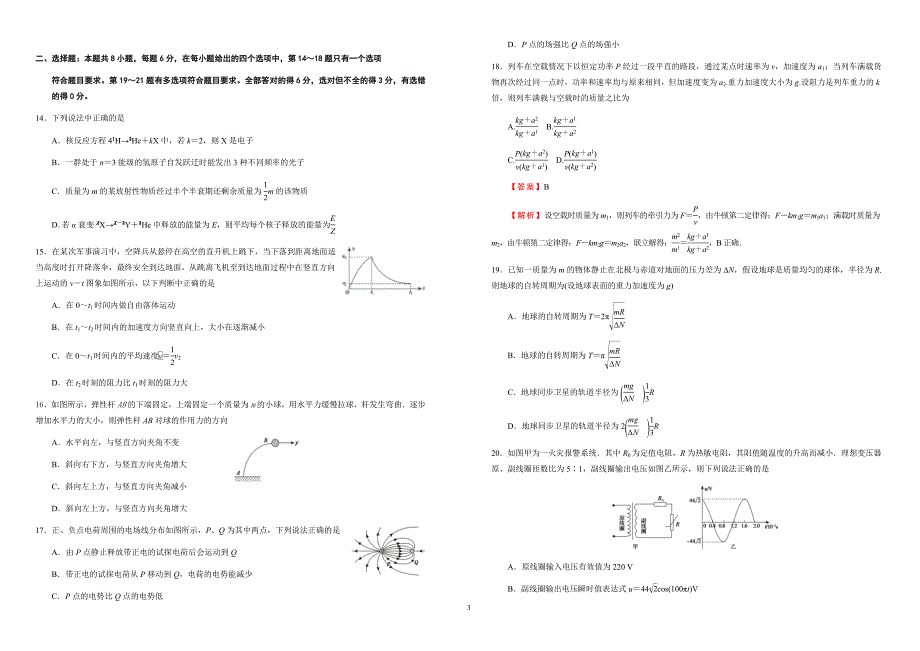 二、选择题：本题共 8 小题，每题 6 分，在每小题给出的四个选项中，第 14～18 题只有一个选项
符合题目要求，第 19～21 题有多选项符合题目要求。全部答对的得 6 分，选对但不全的得 3 分，有选错
的得 0 分。
14．下列说法中正确的是
A．核反应方程 4¹H→²He＋kX 中，若 k＝2，则 X 是电子
B．一群处于 n＝3 能级的氢原子自发跃迁时能发出 3 种不同频率的光子
C．质量为 m 的某放射性物质经过半个半衰期还剩余质量为1/2m 的该物质
D．若 α 衰变 X→Y＋He 中释放的能量为 E，则平均每个核子释放的能量为E/Z
15．在某次军事演习中，空降兵从悬停在高空的直升机上跳下，当下落到距离地面适
当高度时打开降落伞，最终安全到达地面，从跳离飞机至到达地面过程中在竖直方向
上运动的 v－t 图象如图所示，以下判断中正确的是
A．在 0~t₁ 时间内做自由落体运动
B．在 t₁～t₂ 时间内的加速度方向竖直向上，大小在逐渐减小
C．在 0～t₁ 时间内的平均速度＝1/2v₂
D．在 t₂ 时刻的阻力比 t₁ 时刻的阻力大
16．如图所示，弹性杆 AB 的下端固定，上端固定一个质量为 m 的小球，用水平力缓慢拉球，杆发生弯曲．逐步
增加水平力的大小，则弹性杆 AB 对球的作用力的方向
A．水平向左，与竖直方向夹角不变
B．斜向右下方，与竖直方向夹角增大
C．斜向左上方，与竖直方向夹角减小
D．斜向左上方，与竖直方向夹角增大
A B F
17．正、负点电荷周围的电场线分布如图所示，P、Q 为其中两点，下列说法正确的是
A．由 P 点静止释放带正电的试探电荷后会运动到 Q
B．带正电的试探电荷从 P 移动到 Q，电荷的电势能减少
C．P 点的电势比 Q 点的电势低
D．P 点的场强比 Q 点的场强小
18．列车在空载情况下以恒定功率 P 经过一段平直的路段，通过某点时速率为 v，加速度为 a₁；当列车满载货
物再次经过同一点时，功率和速率均与原来相同，但加速度变为 a₂.重力加速度大小为 g.设阻力是列车重力的 k
倍，则列车满载与空载时的质量之比为
A.(kg＋a2)/(kg＋a1) B.(kg＋a1)/(kg＋a2)
C.P(kg＋a2)/v(kg＋a1) D.P(kg＋a1)/v(kg＋a2)
【答案】B
【解析】设空载时质量为 m₁，则列车的牵引力为 F＝P/v，由牛顿第二定律得：F－km₁g＝m₁a₁；满载时质量为
m₂，由牛顿第二定律得：F－km₂g＝m₂a₂，联立解得：m2/m1＝(kg＋a1)/(kg＋a2)，B 正确．
19．已知一质量为 m 的物体静止在北极与赤道对地面的压力差为 ΔN，假设地球是质量均匀的球体，半径为 R.
则地球的自转周期为(设地球表面的重力加速度为 g)
A．地球的自转周期为 T＝2π√(mR/ΔN)
B．地球的自转周期为 T＝π√(mR/ΔN)
C．地球同步卫星的轨道半径为(mg/ΔN)1/3R
D．地球同步卫星的轨道半径为 2(mg/ΔN)1/3R
20．如图甲为一火灾报警系统．其中 R₀ 为定值电阻，R 为热敏电阻，其阻值随温度的升高而减小．理想变压器
原、副线圈匝数比为 5∶1，副线圈输出电压如图乙所示，则下列说法正确的是
原线圈 副线圈 R₀ R 甲
u/V 44√2 0 0.4 0.8 1.2 1.6 2.0 t/×10⁻²s －44√2 乙
A．原线圈输入电压有效值为 220 V
B．副线圈输出电压瞬时值表达式 u＝44√2cos(100πt)V
3